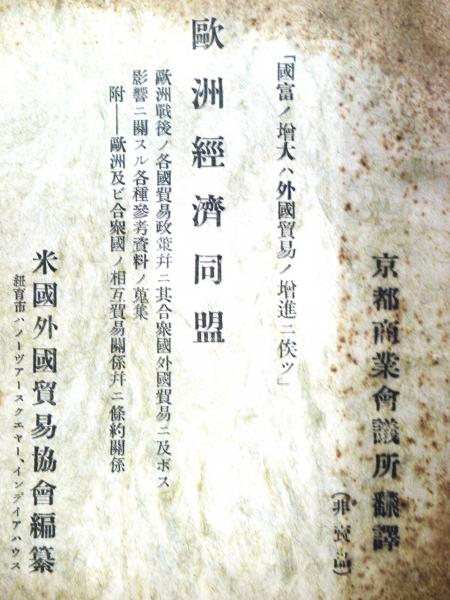 京都商業會議所飜譯
(非賣品)
「國富ノ增大ハ外國貿易ノ增進ニ俟ツ」
歐洲經濟同盟
歐洲戰後ノ各國貿易政策幷ニ其合衆國外國貿易ニ及ボス
影響ニ關スル各種參考資料ノ蒐集
附——歐洲及ビ合衆國ノ相互貿易關係幷ニ條約關係
米國外國貿易協會編纂
紐育市ハノーヴアースクエヤー、インデイアハウス